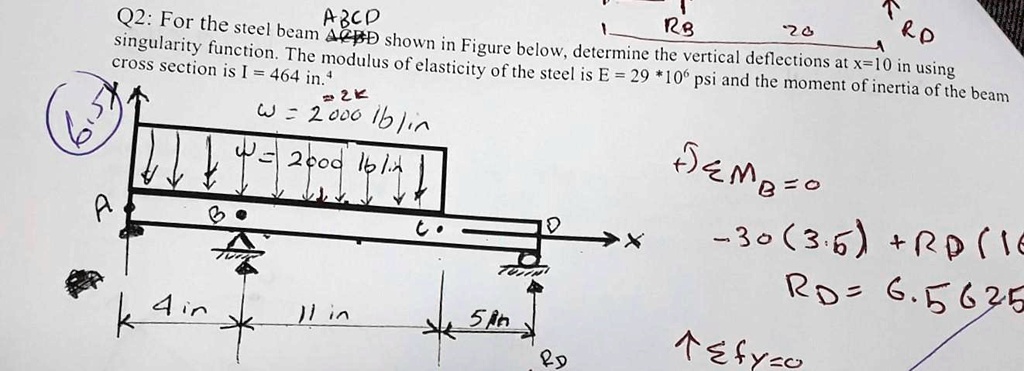 RB 20 RD
ABCD
Q2: For the steel beam ACBD shown in Figure below, determine the vertical deflections at x=10 in using
singularity function. The modulus of elasticity of the steel is E = 29 *10⁶ psi and the moment of inertia of the beam
cross section is I = 464 in.⁴
= 2K
6.5
Y
w = 2000 lb/in
w = 2000 lb/in
+ΣMB=0
A
B
C
D
x
-30(3.5) + RD(16
RD = 6.5625
4 in
11 in
5 in
RD
↑Σfy=0